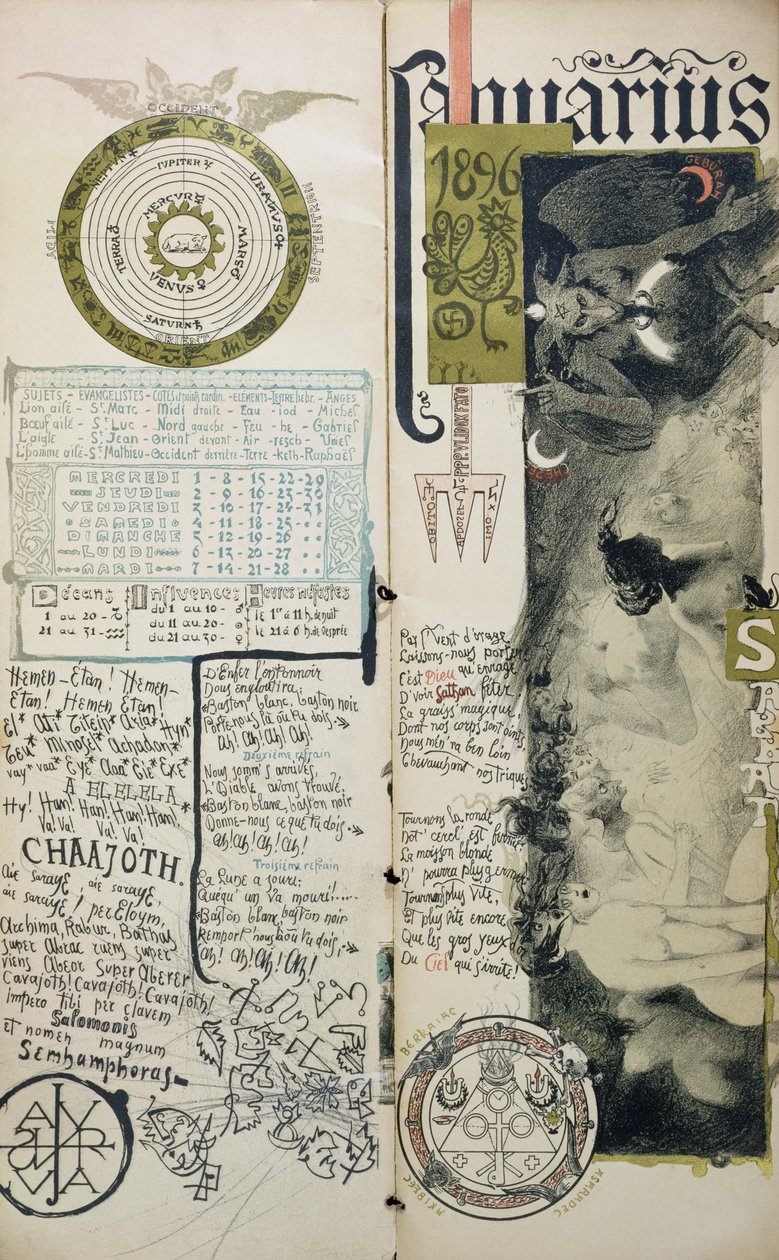 OCCIDENT
SEPTENTRION
MIDY
NEPTUN
IUPITER
URANUS
MERCUR
MARS
TERRA
VENUS
SATURN
ORIENT
SUJETS - EVANGELISTES - COTES et points cardin. - ELEMENTS - LETTRE hebr. - ANGES
Lion ailé - St Marc - Midi droite - Eau - iod - Michel
Bœuf ailé - St Luc - Nord gauche - Feu - he - Gabriel
L'aigle - St Jean - Orient devant - Air - resch - Uriel
L'homme ailé - St Mathieu - Occident derrière - Terre - keth - Raphaël
MERCREDI 1 - 8 - 15 - 22 - 29
JEUDI 2 - 9 - 16 - 23 - 30
VENDREDI 3 - 10 - 17 - 24 - 31
SAMEDI 4 - 11 - 18 - 25
DIMANCHE 5 - 12 - 19 - 26
LUNDI 6 - 13 - 20 - 27
MARDI 7 - 14 - 21 - 28
Décans
1 au 20 - ♑
21 au 31 - ♒
Influences
du 1 au 10 - ♂
du 11 au 20 -
du 21 au 30 - ♀
Heures néfastes
le 1er à 11 h. de nuit
le 21 à 6 h. de vesprée
Hemen-Étan! Hemen-
Étan! Hemen Étan!
El* Ati* Titeip* Azia* Hyn*
Teu* Minosel* Achadon*
vay* vaa* Eye* Aaa* Eie* Exe*
A EL EL EL A
Hy! Hau! Hau! Hau! Hau!
Va! Va! Va! Va!
CHAAJOTH.
Aie saraye, aie saraye,
aie saraye! per Eloym,
Archima, Rabur, Bathas
super Abrac ruens super
viens Abeor Super Aberer
Cavajoth! Cavajoth! Cavajoth!
impero tibi per clavem
Salomonis
et nomen magnum
Semhamphoras
D'Enfer l'entonnoir
Nous engloutira;
Baston blanc, baston noir
Porte nous là où tu dois
Ah! Ah! Ah! Ah!
Deuxième refrain
Nous somm's arrivés,
L'Diable avons trouvé,
Baston blanc, baston noir
Donne-nous ce que tu dois
Ah! Ah! Ah! Ah!
Troisième refrain
La Lune a souri;
Quéqu' un va mouri!....
Baston blanc, baston noir
Remport' nous là où tu dois,
Ah! Ah! Ah! Ah!
Januarius
1896
GEBURAH
CHESED
OBITO
IMO
Par l'vent d'orage
Laissons-nous porter
C'est Dieu qu'enrage
D'voir Sathan fêter
La graiss' magique
Dont nos corps sont oints
Nous mèn'ra ben loin
Chevauchant nos triques
SABBAT
Tournons la ronde
Not' cercl' est fermé
La moisson blonde
N' pourra plus germer
Tournons plus vite,
Et plus vite encore
Que les gros yeux
Du Ciel qui s'irrite!
BERKAIAC
AKIBEEC
ASMARDEC